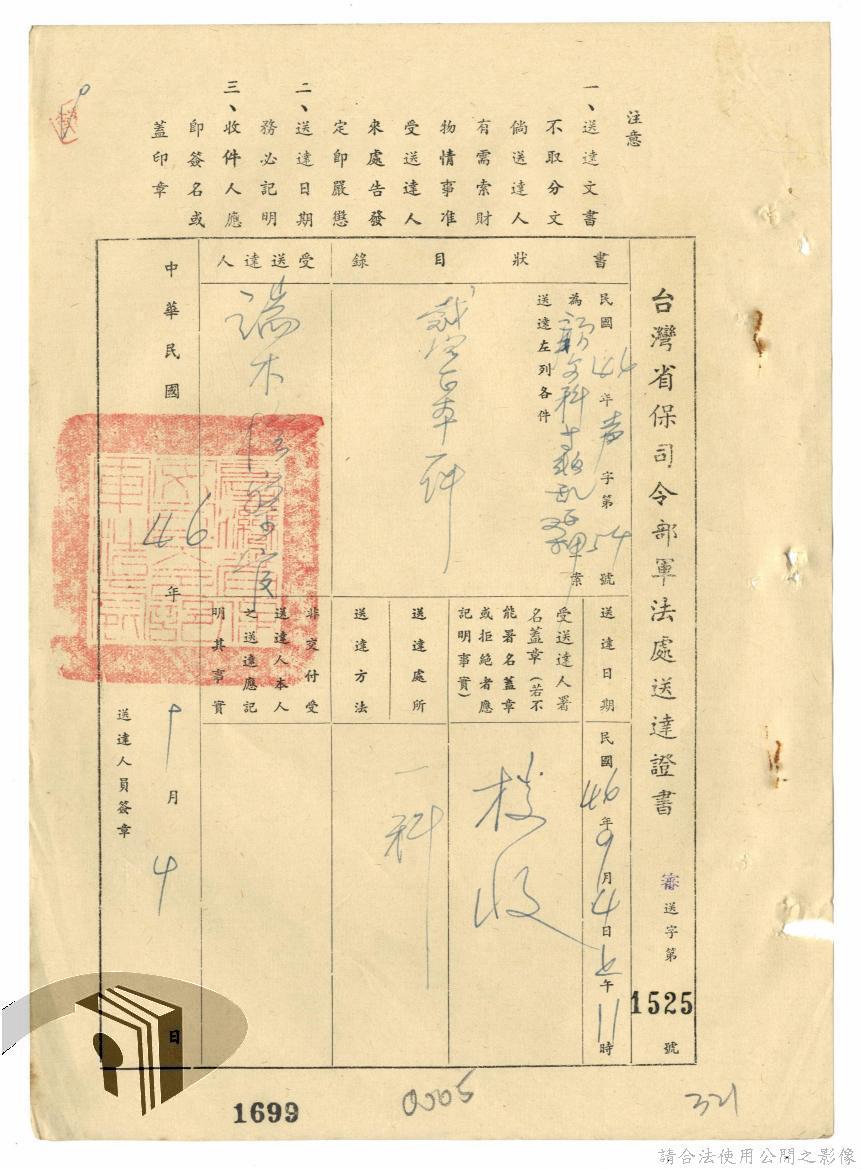 注意
一、送達文書
不取分文
倘送達人
有需索財
物情事准
受送達人
來處告發
定即嚴懲
二、送達日期
務必記明
三、收件人應
即簽名或
蓋印章
台灣省保司令部軍法處送達證書
審送字第1525號
書狀目錄
民國44年 字第54號
為 案
送達左列各件
裁定正本一件
受送達人
端木
送達日期
民國46年9月4日上午11時
受送達人署
名蓋章(若不
能署名蓋章
或拒絕者應
記明事實)
收
送達處所
一科
送達方法
非交付受
送達人本人
之送達應記
明其事實
中華民國46年9月4日
送達人員簽章
1699
0005
321
請合法使用公開之影像